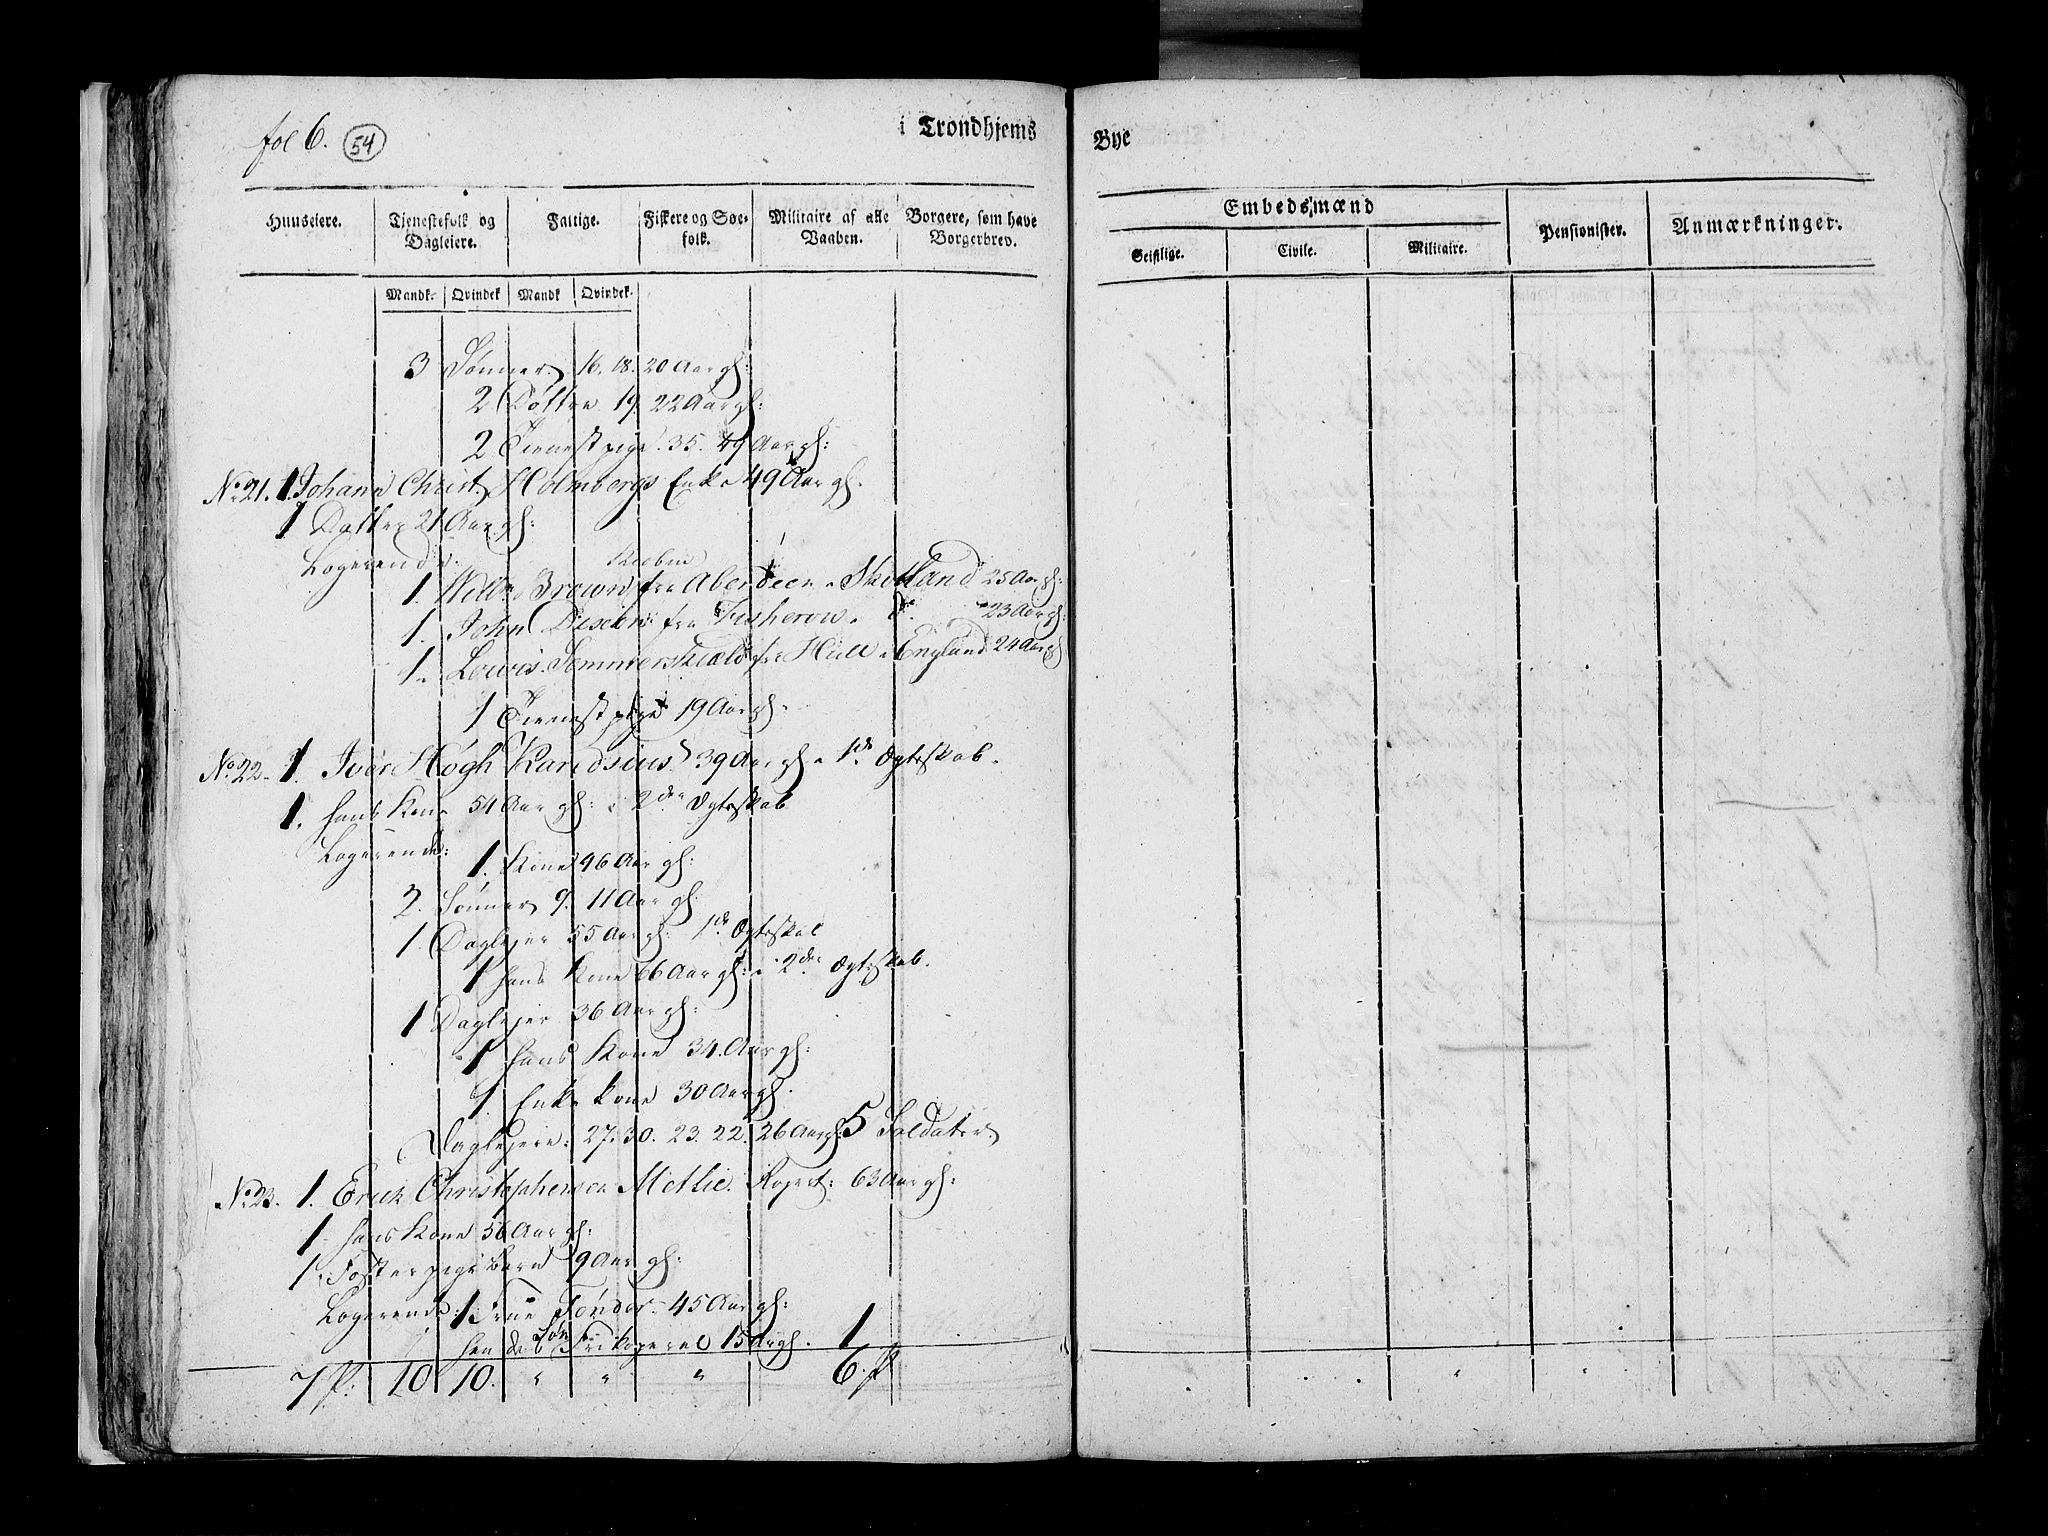 fol 6. 54
i Trondhjems Bye
Huuseiere. Tjenestefolk og Dagleiere. Fattige. Fiskere og Søefolk. Militaire af alle Vaaben. Borgere, som have Borgerbrev. Embedsmænd Pensionister. Anmærkninger.
Geistlige. Civile. Militaire.
Mandk. Qvindek Mandk Qvindek.
3 Sønner 16. 18. 20 Aar gl:
2 Døttre 19. 22 Aar gl:
2 Tienestpige. 35. 49 Aar gl:
No 21. 1. Johann Christ. Holmbergs Enke 49 Aar gl.
1 Datter 21 Aar gl:
Logerende:
1. Willm Brown fra Aberdeen Skotland 25 Aar gl:
1. John fra Fisherow do 23 Aar gl:
1. Lewis Sommerskield fra Hull England 24 Aar gl
1 Tienestpige 19 Aar gl.
No 22. 1. Iver Høgh Randsius 39 Aar gl 1te Ægteskab.
1. hans Kone 54 Aar gl: 2den Ægteskab
Logerende:
1. Kone 46 Aar gl:
2. Sønner 9. 11 Aar gl:
1 Daglejer 55 Aar gl: 1te Ægteskab
1 hans Kone 66 Aar gl: 2den Ægteskab.
1 Daglejer 36 Aar gl:
1 hans Kone 34. Aar gl:
1. Enke kone 30 Aar gl.
Daglejere: 27. 30. 23. 22. 26 Aar gl: 5 Soldater.
No 23. 1. Erick Christophersen Mettie. Repert: 63 Aar gl:
1. hans Kone 56 Aar gl:
1. Foster pige barn 9 Aar gl:
Logerende: 1 Frue Tønder. 45 Aar gl:
hendes Søn 15 Ar gl. 1
7 fl: 10 10. " " " 6. fl
" "